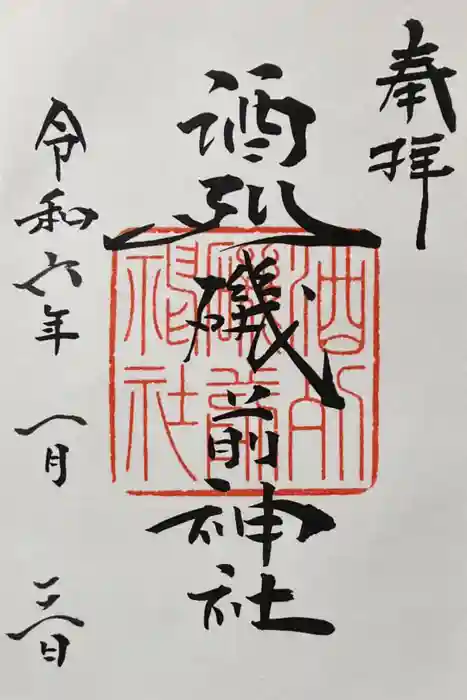 奉拝
酒列磯前神社
酒列
磯前
神社
令和六年 一月 日